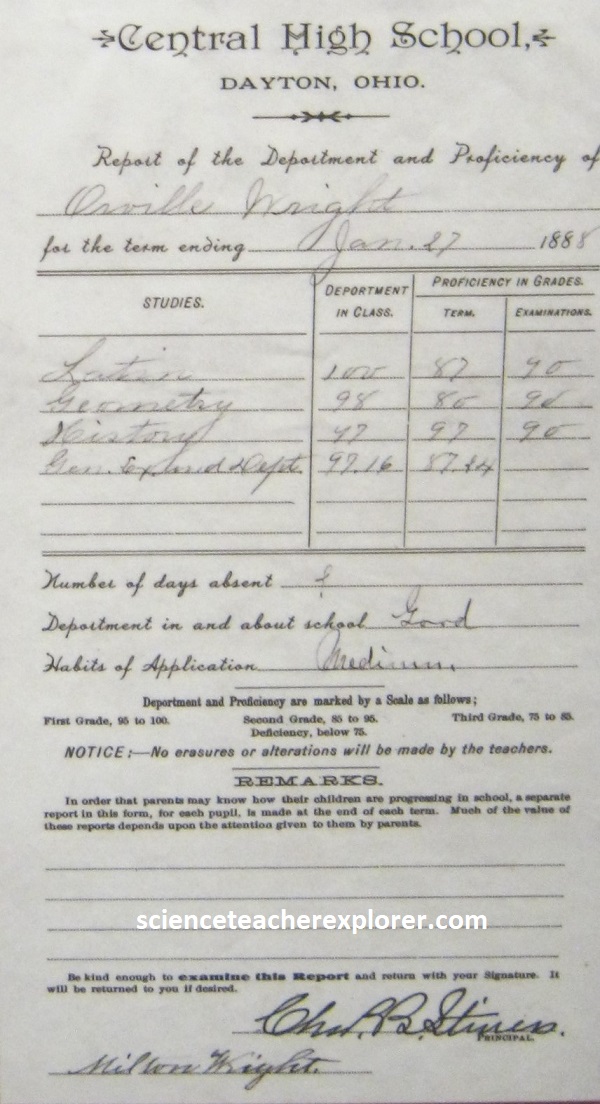 Central High School,
DAYTON, OHIO.
Report of the Deportment and Proficiency of
Orville Wright
for the term ending Jan. 27 1888
STUDIES. DEPORTMENT IN CLASS. PROFICIENCY IN GRADES.
TERM. EXAMINATIONS.
Latin 100 87 90
Geometry 98 86 90
History 97 97 90
Gen. Dept. 97.16
Number of days absent
Deportment in and about school Good
Habits of Application Medium.
Deportment and Proficiency are marked by a Scale as follows;
First Grade, 95 to 100. Second Grade, 85 to 95. Third Grade, 75 to 85.
Deficiency, below 75.
NOTICE:—No erasures or alterations will be made by the teachers.
REMARKS.
In order that parents may know how their children are progressing in school, a separate
report in this form, for each pupil, is made at the end of each term. Much of the value of
these reports depends upon the attention given to them by parents.
scienceteacherexplorer.com
Be kind enough to examine this Report and return with your Signature. It
will be returned to you if desired.
Chas. B. Stivers.
PRINCIPAL.
Milton Wright.